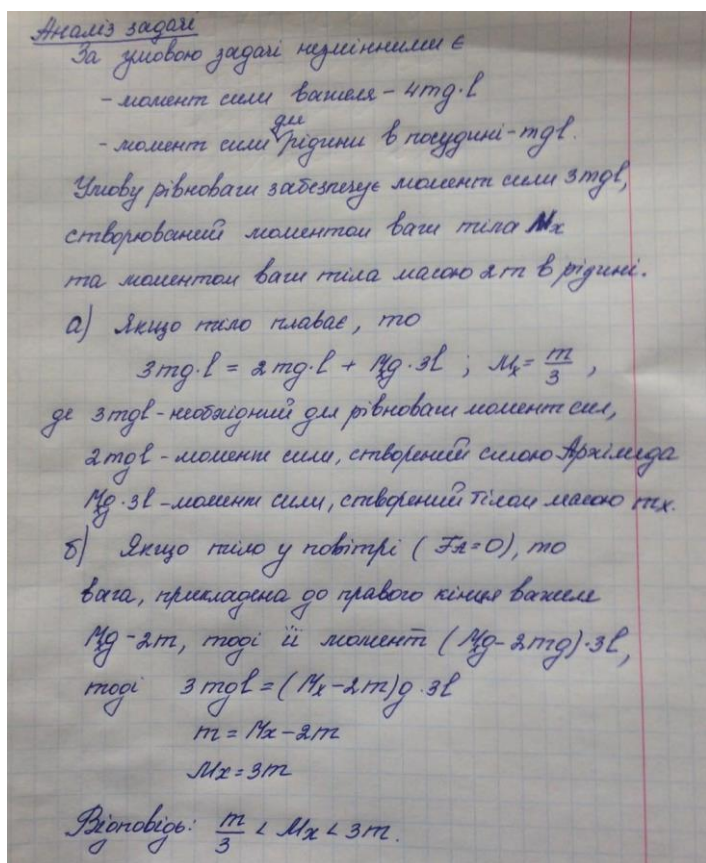 Аналіз задачі
За умовою задачі незмінними є
- момент сили важеля - 4mg·l
- момент сили дии рідини в посудині - mgl.
Умову рівноваги забезпечує момент сили 3mgl,
створюваний моментом ваги тіла Mx
та моментом ваги тіла масою 2m в рідині.
а) Якщо тіло плаває, то
3mg·l = 2mg·l + Mxg·3l ; Mx = m/3 ,
де 3mgl - необхідний для рівноваги момент сил,
2mgl - момент сили, створений силою Архімеда
Mxg·3l - момент сили, створений тілом масою mx.
б) Якщо тіло у повітрі (FA=0), то
вага, прикладена до правого кінця важеля
Mxg-2m, тоді її момент (Mxg-2mg)·3l,
тоді 3mgl=(Mx-2m)g·3l
m = Mx-2m
Mx=3m
Відповідь: m/3 < Mx < 3m.